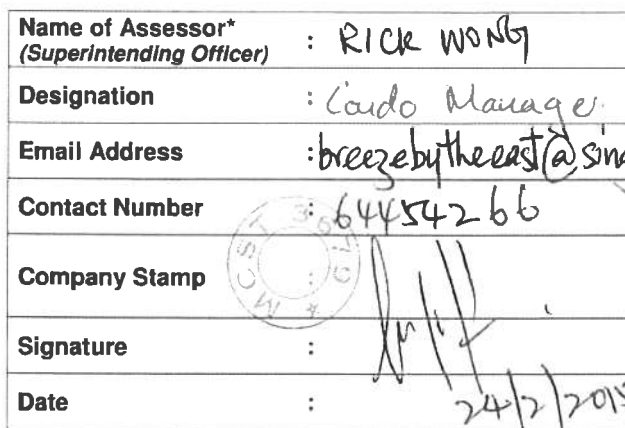 Name of Assessor* : RICK WONG
(Superintending Officer)
Designation : Condo Manager
Email Address : breezebytheeast@sina
Contact Number : 64454266
Company Stamp :
MCST
Signature :
Date : 24/2/201